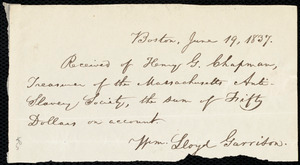 Boston, June 19, 1837.
Received of Henry G. Chapman,
Treasurer of the Massachusetts Anti-
Slavery Society, the sum of Fifty
Dollars on account.
Wm. Lloyd Garrison.